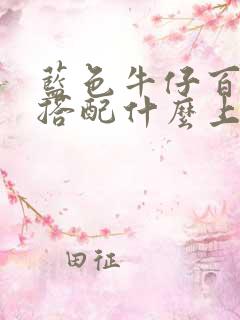 藍色牛仔百
搭配什麼上
田征